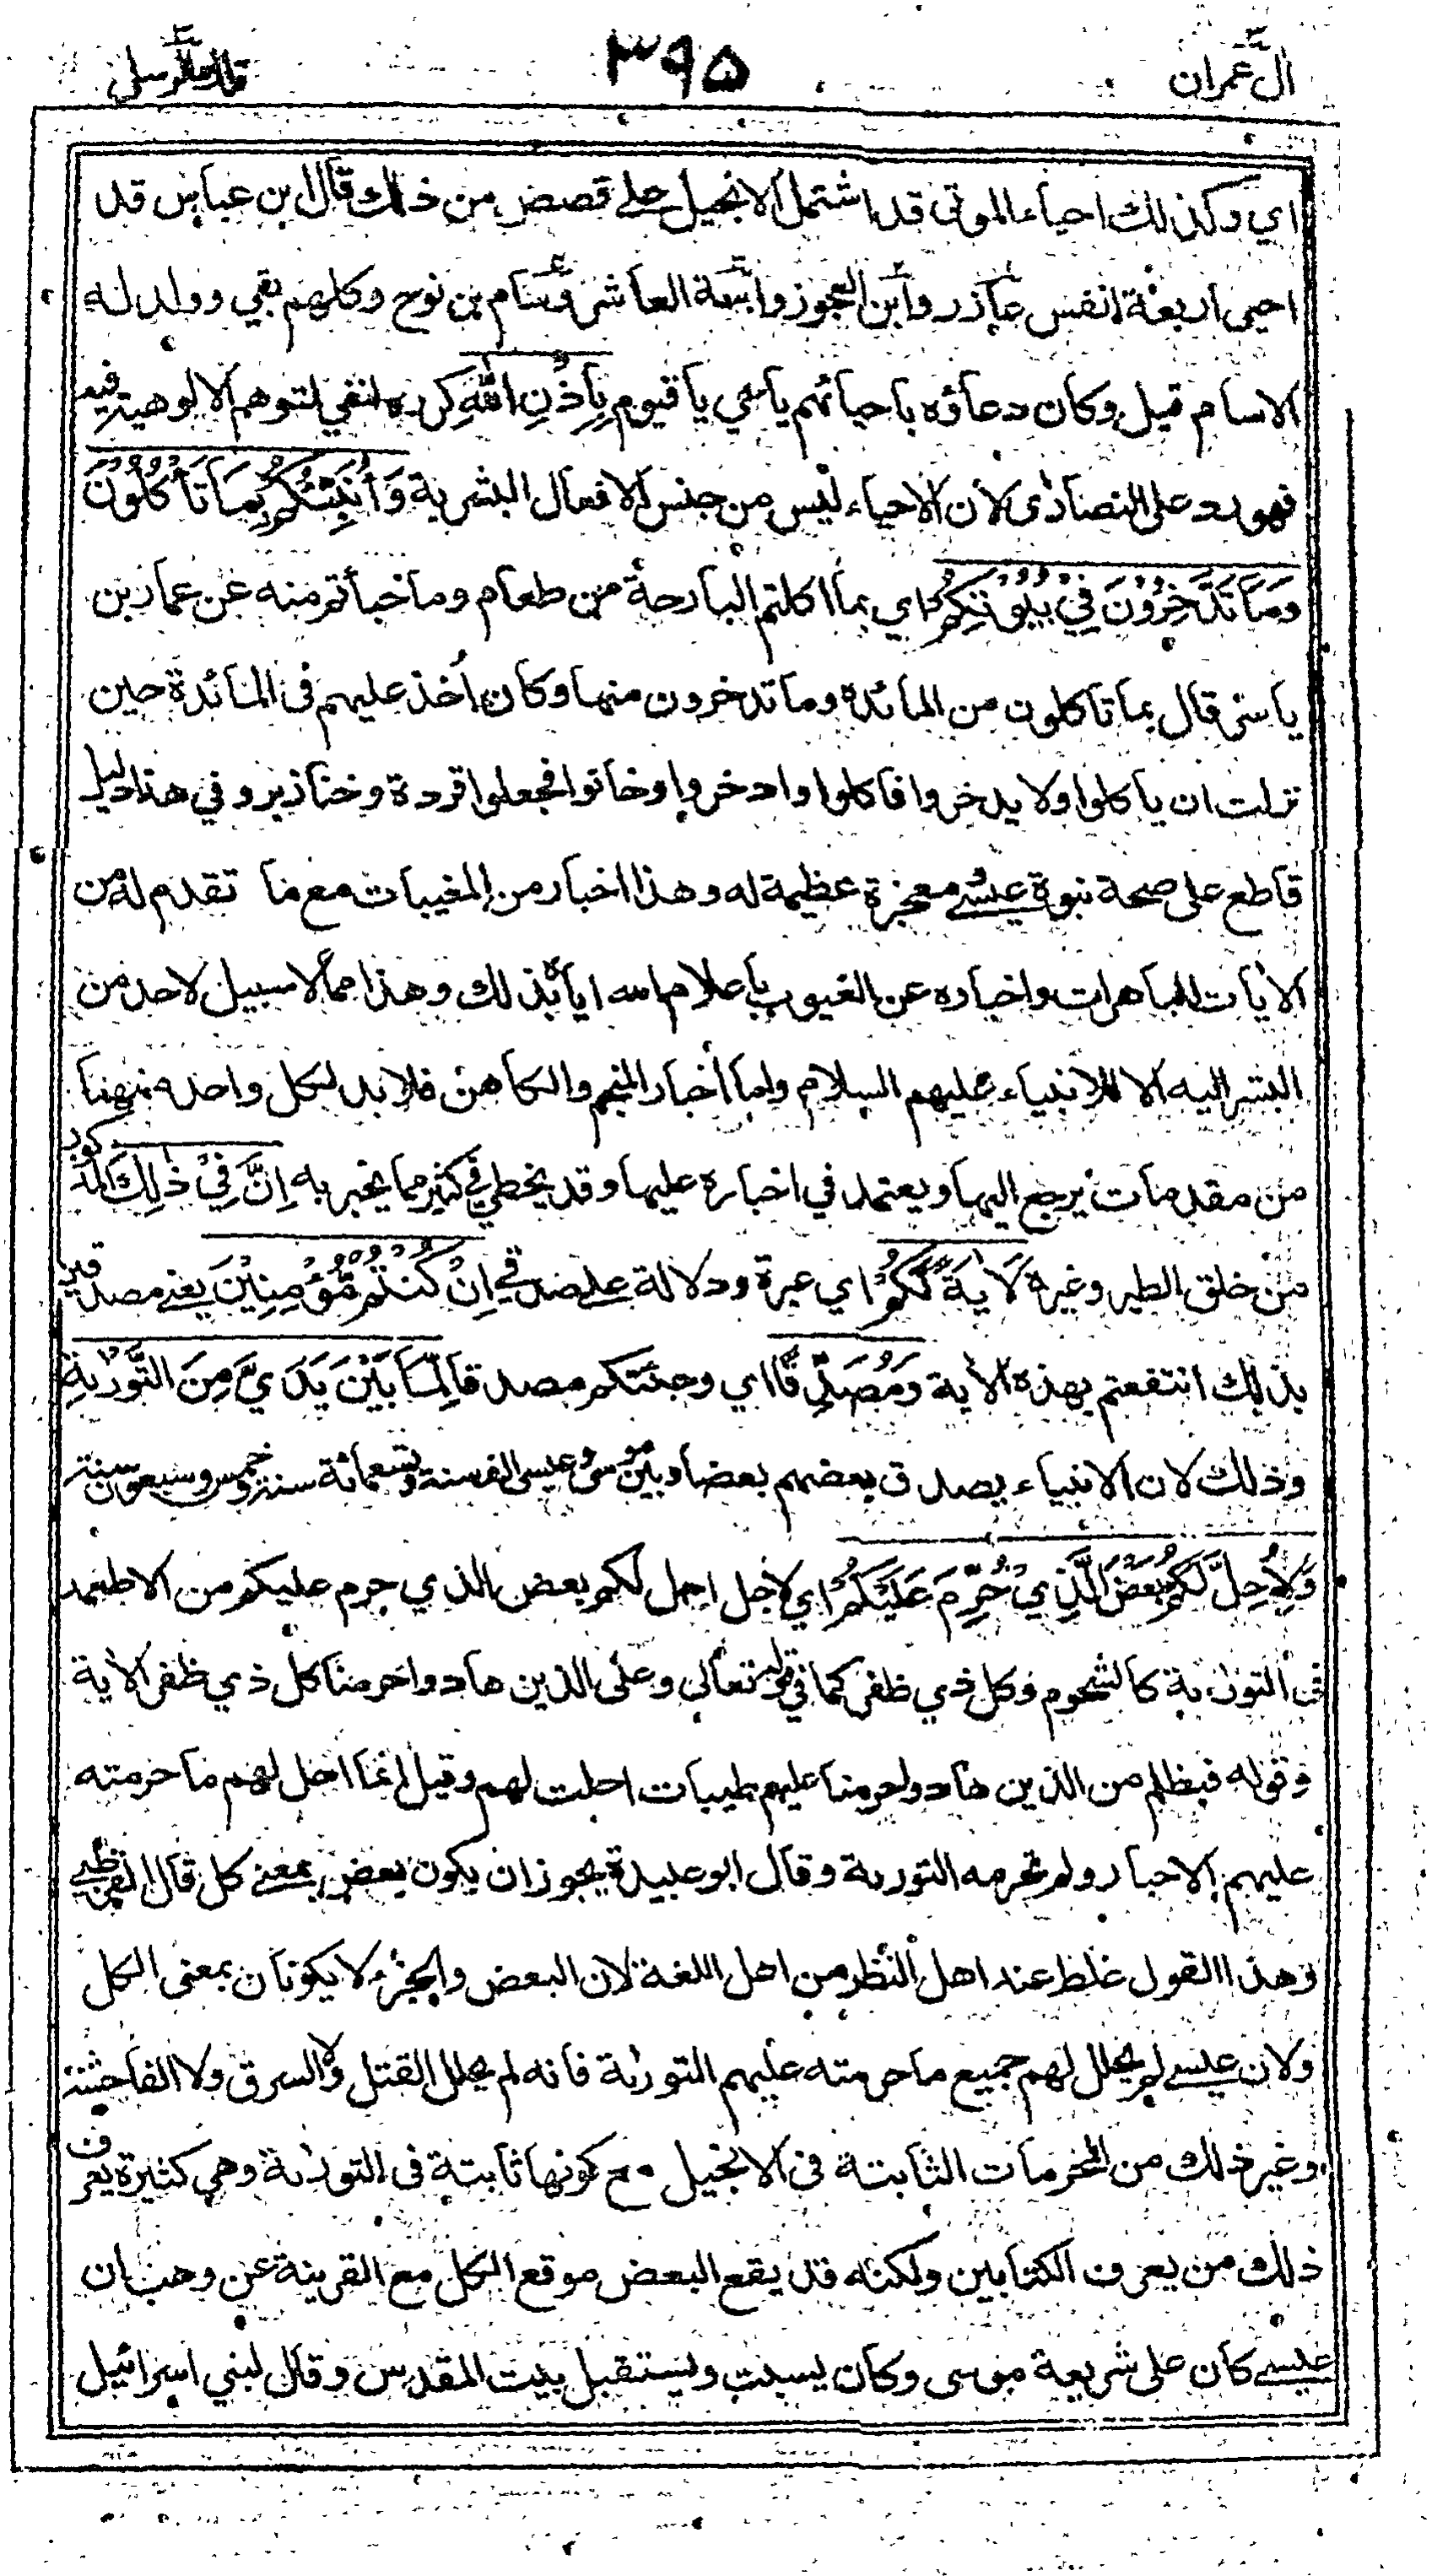 آل عمران
٣٩٥
تلك الرسل
اي وكذلك احياء الموتى قد اشتمل الانجيل على قصص من ذلك قال ابن عباس قد
احيى اربعة انفس عاذر وابن العجوز وابنة العاشر وسام بن نوح وكلهم بقي وولد له
الا سام قيل وكان دعاؤه باحيائهم يا حي يا قيوم بِإِذْنِ اللّٰهِ كرره لنفي لتوهم الالوهية فيه
فهو رد على النصارى لان الاحياء ليس من جنس الافعال البشرية وَأُنَبِّئُكُمْ بِمَا تَأْكُلُوْنَ
وَمَا تَدَّخِرُوْنَ فِيْ بُيُوْتِكُمْ اي بما اكلتم البارحة من طعام وما خبأتم منه عن عمار بن
ياسر قال بما تاكلون من المائدة وما تدخرون منها وكان أخذ عليهم فى المائدة حين
نزلت ان ياكلوا ولا يدخروا فاكلوا وادخروا وخانوا فجعلوا قردة وخنازير وفي هذا دليل
قاطع على صحة نبوة عيسى معجزة عظيمة له وهذا اخبار من المغيبات مع ما تقدم له من
الأيات الباهرات واخباره عن الغيوب باعلام الله اياه بذلك وهذا مما لا سبيل لاحد من
البشر اليه الا للانبياء عليهم السلام واما أخبار المنجم والكاهن فلا بد لكل واحد منهما
من مقدمات يرجع اليها ويعتمد في اخباره عليها وقد يخطي في كثير مما يخبر به اِنَّ فِيْ ذٰلِكَ المذكور
من خلق الطير وغيره لَاٰيَةً لَّكُمْ اي عبرة ودلالة على صدقي اِنْ كُنْتُمْ مُّؤْمِنِيْنَ يعني مصدقين
بذلك انتفعتم بهذه الأية وَمُصَدِّقًا اي وجئتكم مصدقا لِّمَا بَيْنَ يَدَيَّ مِنَ التَّوْرٰىةِ
وذلك لان الانبياء يصدق بعضهم بعضا وبين موسى وعيسى الف سنة وتسعمائة سنة وخمس وسبعون سنة
وَلِأُحِلَّ لَكُمْ بَعْضَ الَّذِيْ حُرِّمَ عَلَيْكُمْ اي لاجل احل لكم بعض الذي حرم عليكم من الاطعمة
فى التورٰىة كالشحوم وكل ذي ظفر كما في قوله تعالى وعلى الذين هادوا حرمنا كل ذي ظفر الأية
وقوله فبظلم من الذين هادوا حرمنا عليهم طيبات احلت لهم وقيل انما احل لهم ما حرمته
عليهم الاحبار ولم تحرمه التورىة وقال ابو عبيدة يجوز ان يكون بعض بمعنى كل قال القرطبي
وهذا القول غلط عند اهل النظر من اهل اللغة لان البعض والجزء لا يكونان بمعنى الكل
ولان عيسى لم يحلل لهم جميع ما حرمته عليهم التورٰىة فانه لم يحلل القتل ولا السرق ولا الفاحشة
وغير ذلك من المحرمات الثابتة فى الانجيل مع كونها ثابتة فى التورٰىة وهي كثيرة يعرف
ذلك من يعرف الكتابين ولكنه قد يقع البعض موقع الكل مع القرينة عن وهب ان
عيسى كان على شريعة موسى وكان يسبت ويستقبل بيت المقدس وقال لبني اسرائيل